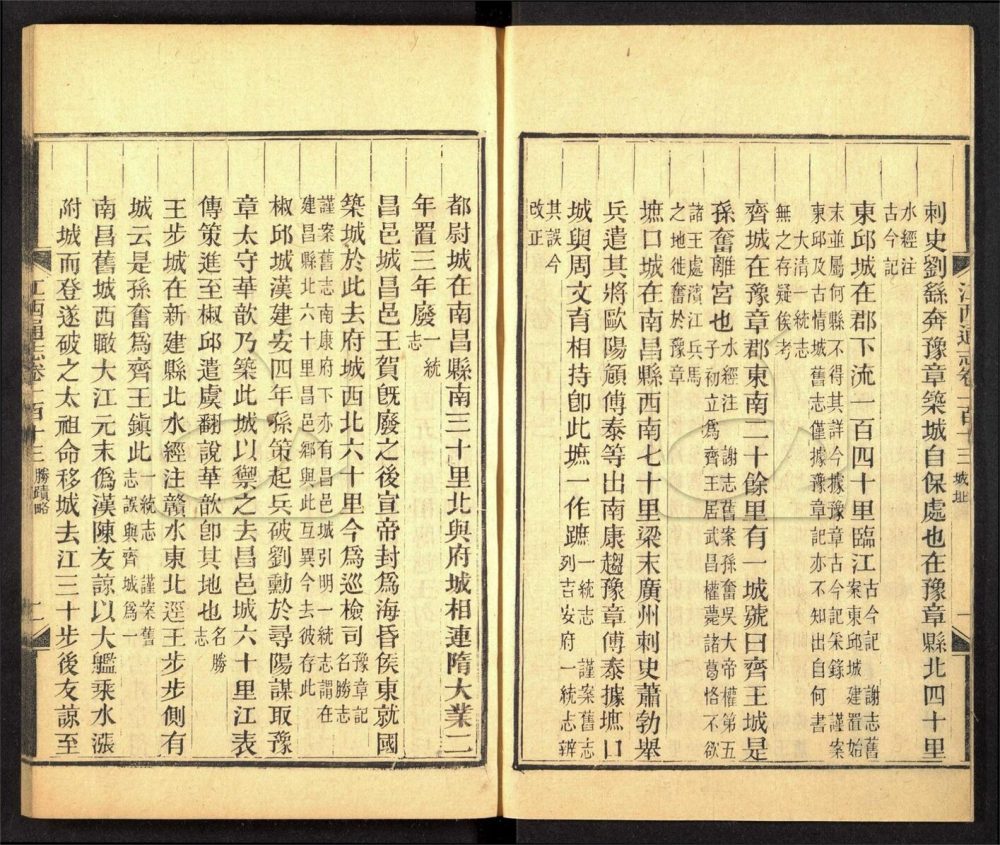 刺史劉繇奔豫章築城自保處也在豫章縣北四十里
水經注
古今記
東邱城在郡下流一百四十里臨江古今記 謝志舊
案東邱城建置始
末並屬何縣不得其詳今據豫章古今記采錄 謹案
東邱及古情城舊志僅據豫章記亦不知出自何書
大清一統志
無之存疑俟考
齊城在豫章郡東南二十餘里有一城號曰齊王城是
孫奮離宮也水經注 謝志舊案孫奮吳大帝權第五
子初立爲齊王居武昌權薨諸葛恪不欲
諸王處濱江兵馬
之地徙奮於豫章
墌口城在南昌縣西南七十里梁末廣州刺史蕭勃舉
兵遣其將歐陽頠傅泰等出南康趨豫章傅泰據墌口
城與周文育相持卽此墌一作蹠一統志 謹案舊志
列吉安府一統志辨
其誤今
改正
江西通志卷一百十三 城址 一
都尉城在南昌縣南三十里北與府城相連隋大業二
年置三年廢一統
志
昌邑城昌邑王賀旣廢之後宣帝封爲海昏侯東就國
築城於此去府城西北六十里今爲巡檢司豫章記
名勝志
謹案舊志南康府下亦有昌邑城引明一統志謂在
建昌縣北六十里昌邑鄉與此互異今去彼存此
椒邱城漢建安四年孫策起兵破劉勳於尋陽謀取豫
章太守華歆乃築此城以禦之去昌邑城六十里江表
傳策進至椒邱遣虞翻說華歆卽其地也名勝
志
王步城在新建縣北水經注贛水東北逕王步步側有
城云是孫奮爲齊王鎮此一統志 謹案舊
志誤與齊城爲一
南昌舊城西瞰大江元末僞漢陳友諒以大艦乘水漲
附城而登遂破之太祖命移城去江三十步後友諒至
江西通志卷一百十三 勝蹟略